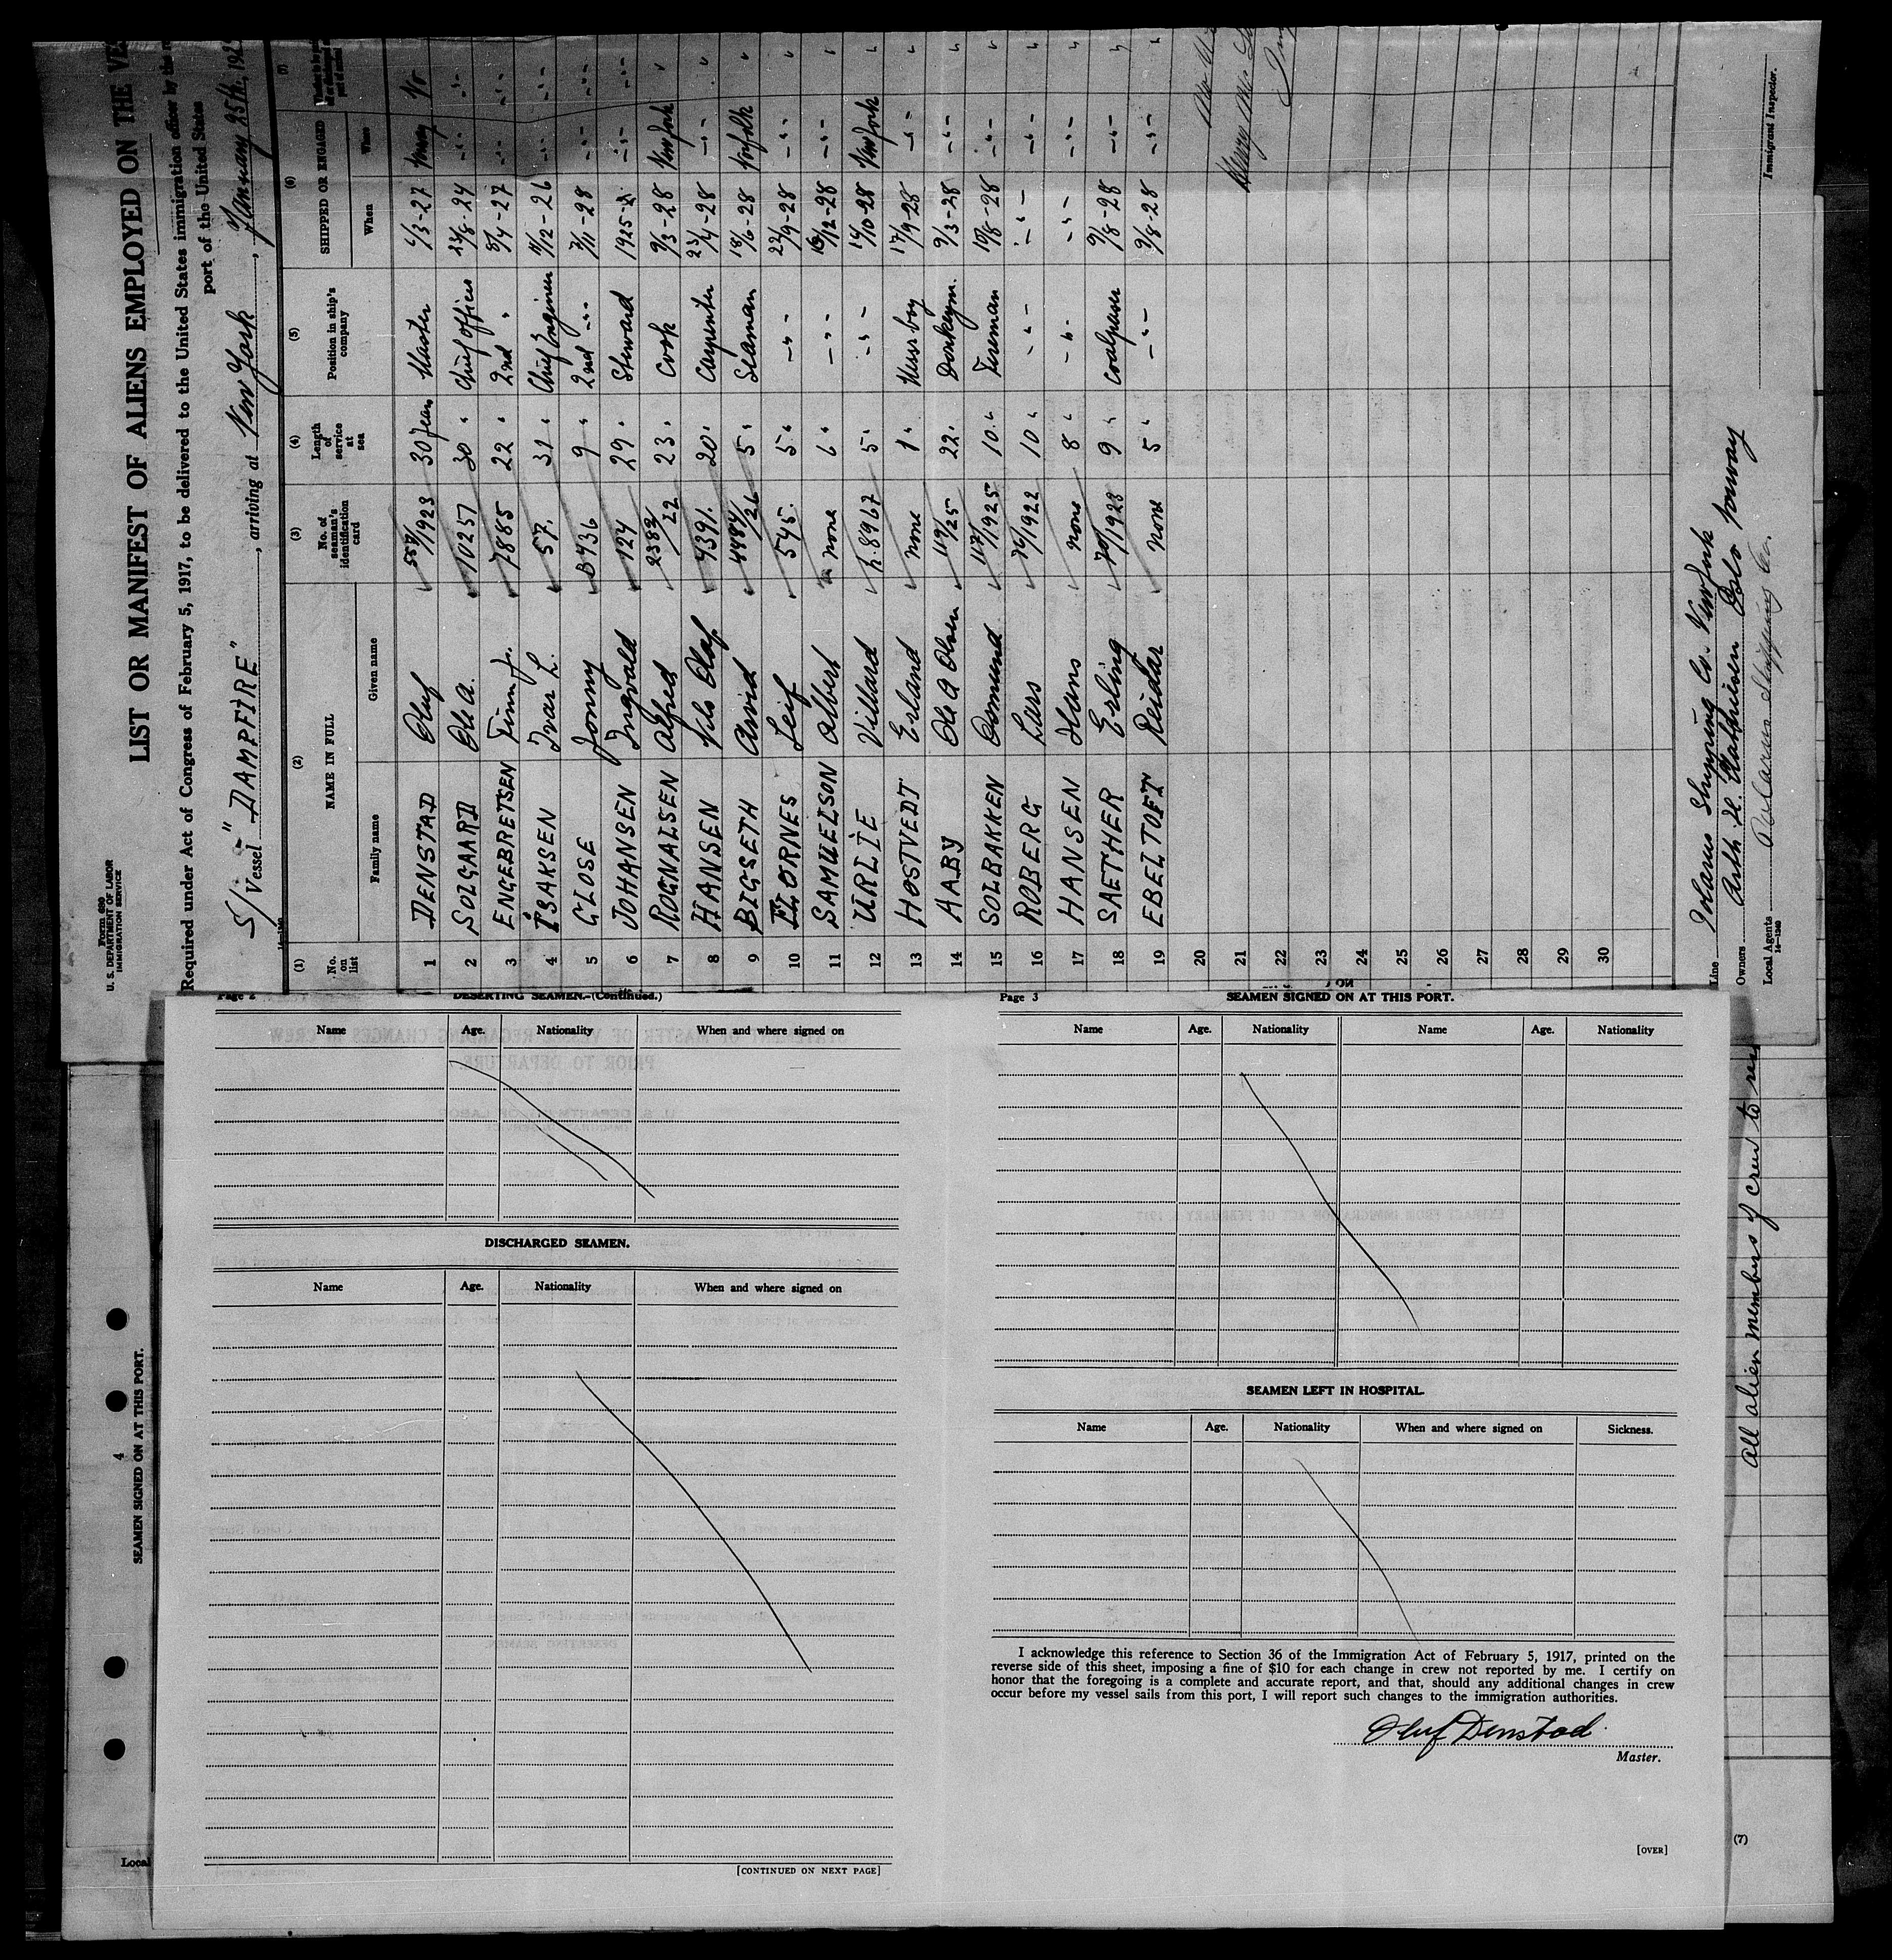 Form 680
U. S. DEPARTMENT OF LABOR
IMMIGRATION SERVICE
LIST OR MANIFEST OF ALIENS EMPLOYED ON THE
Required under Act of Congress of February 5, 1917, to be delivered to the United States immigration officer by the
port of the United States
S/S Vessel "DAMPFIRE", arriving at New York, January 25th, 192
(1) (2) (3) (4) (5) (6) (7)
No. on list NAME IN FULL No. of seaman's identification card Length of service at sea Position in ship's company SHIPPED OR ENGAGED
Family name Given name When Where
1 DENSTAD Oluf 1923 30 Years Master 6/3-27
2 SOLGAARD Ole A. 10257 30 " Chief officer 23/8-24 -"-
3 ENGEBRETSEN Finn Jr. 7885 22 " 2nd " 8/4-27 -"-
4 ISAKSEN Ivar L. 57. 31 " Chief Engineer 9/12-26 -"-
5 CLOSE Jonny B436 9 " 2nd -"- 7/11-28 -"-
6 JOHANSEN Ingvald 124 29 " Steward 1925 -"-
7 ROGNALSEN Alfred 2382/22 23 " Cook 9/3-28 New York
8 HANSEN Nils Olaf 4391. 20 " Carpenter 23/4-28 -"-
9 BIGSETH Arvid 4484/26 5 " Seaman 18/6-28 Norfolk
10 FLORNES Leif 545. 5 " -"- 22/9-28 -"-
11 SAMUELSON Albert none 6 " -"- 12-28 -"-
12 URLIE Villard h.8967 5 " -"- 16/10-28 New York
13 HOSTVEDT Erland none 1 " Messboy 17/9-28 -"-
14 AABY Ole A Olsen 119/25 22 " Donkeym. 9/3-28 -"-
15 SOLBAKKEN Osmund 117/1925 10 " Fireman 10/8-28 -"-
16 ROBERG Lars 76/1922 10 " -"- -"- -"-
17 HANSEN Hans none 8 " -"- -"- -"-
18 SAETHER Erling 70/1928 9 " Coalpasser 9/8-28 -"-
19 EBELTOFT Reidar none 5 " -"- 9/8-28 -"-
20
21
22
23
24
25
26
27
28
29
30
Line Shipping Co. New York
Owners Arth. H. Mathiesen Oslo Norway
Local Agents Shipping Co.
Immigrant Inspector.
Page 2 DESERTING SEAMEN.—(Continued.)
Name Age. Nationality When and where signed on
DISCHARGED SEAMEN.
Name Age. Nationality When and where signed on
[CONTINUED ON NEXT PAGE]
Page 3 SEAMEN SIGNED ON AT THIS PORT.
Name Age. Nationality Name Age. Nationality
SEAMEN LEFT IN HOSPITAL.
Name Age. Nationality When and where signed on Sickness.
I acknowledge this reference to Section 36 of the Immigration Act of February 5, 1917, printed on the
reverse side of this sheet, imposing a fine of $10 for each change in crew not reported by me. I certify on
honor that the foregoing is a complete and accurate report, and that, should any additional changes in crew
occur before my vessel sails from this port, I will report such changes to the immigration authorities.
Oluf Denstad
Master.
[OVER]
4
SEAMEN SIGNED ON AT THIS PORT.
Local
All alien members of crew to
(7)